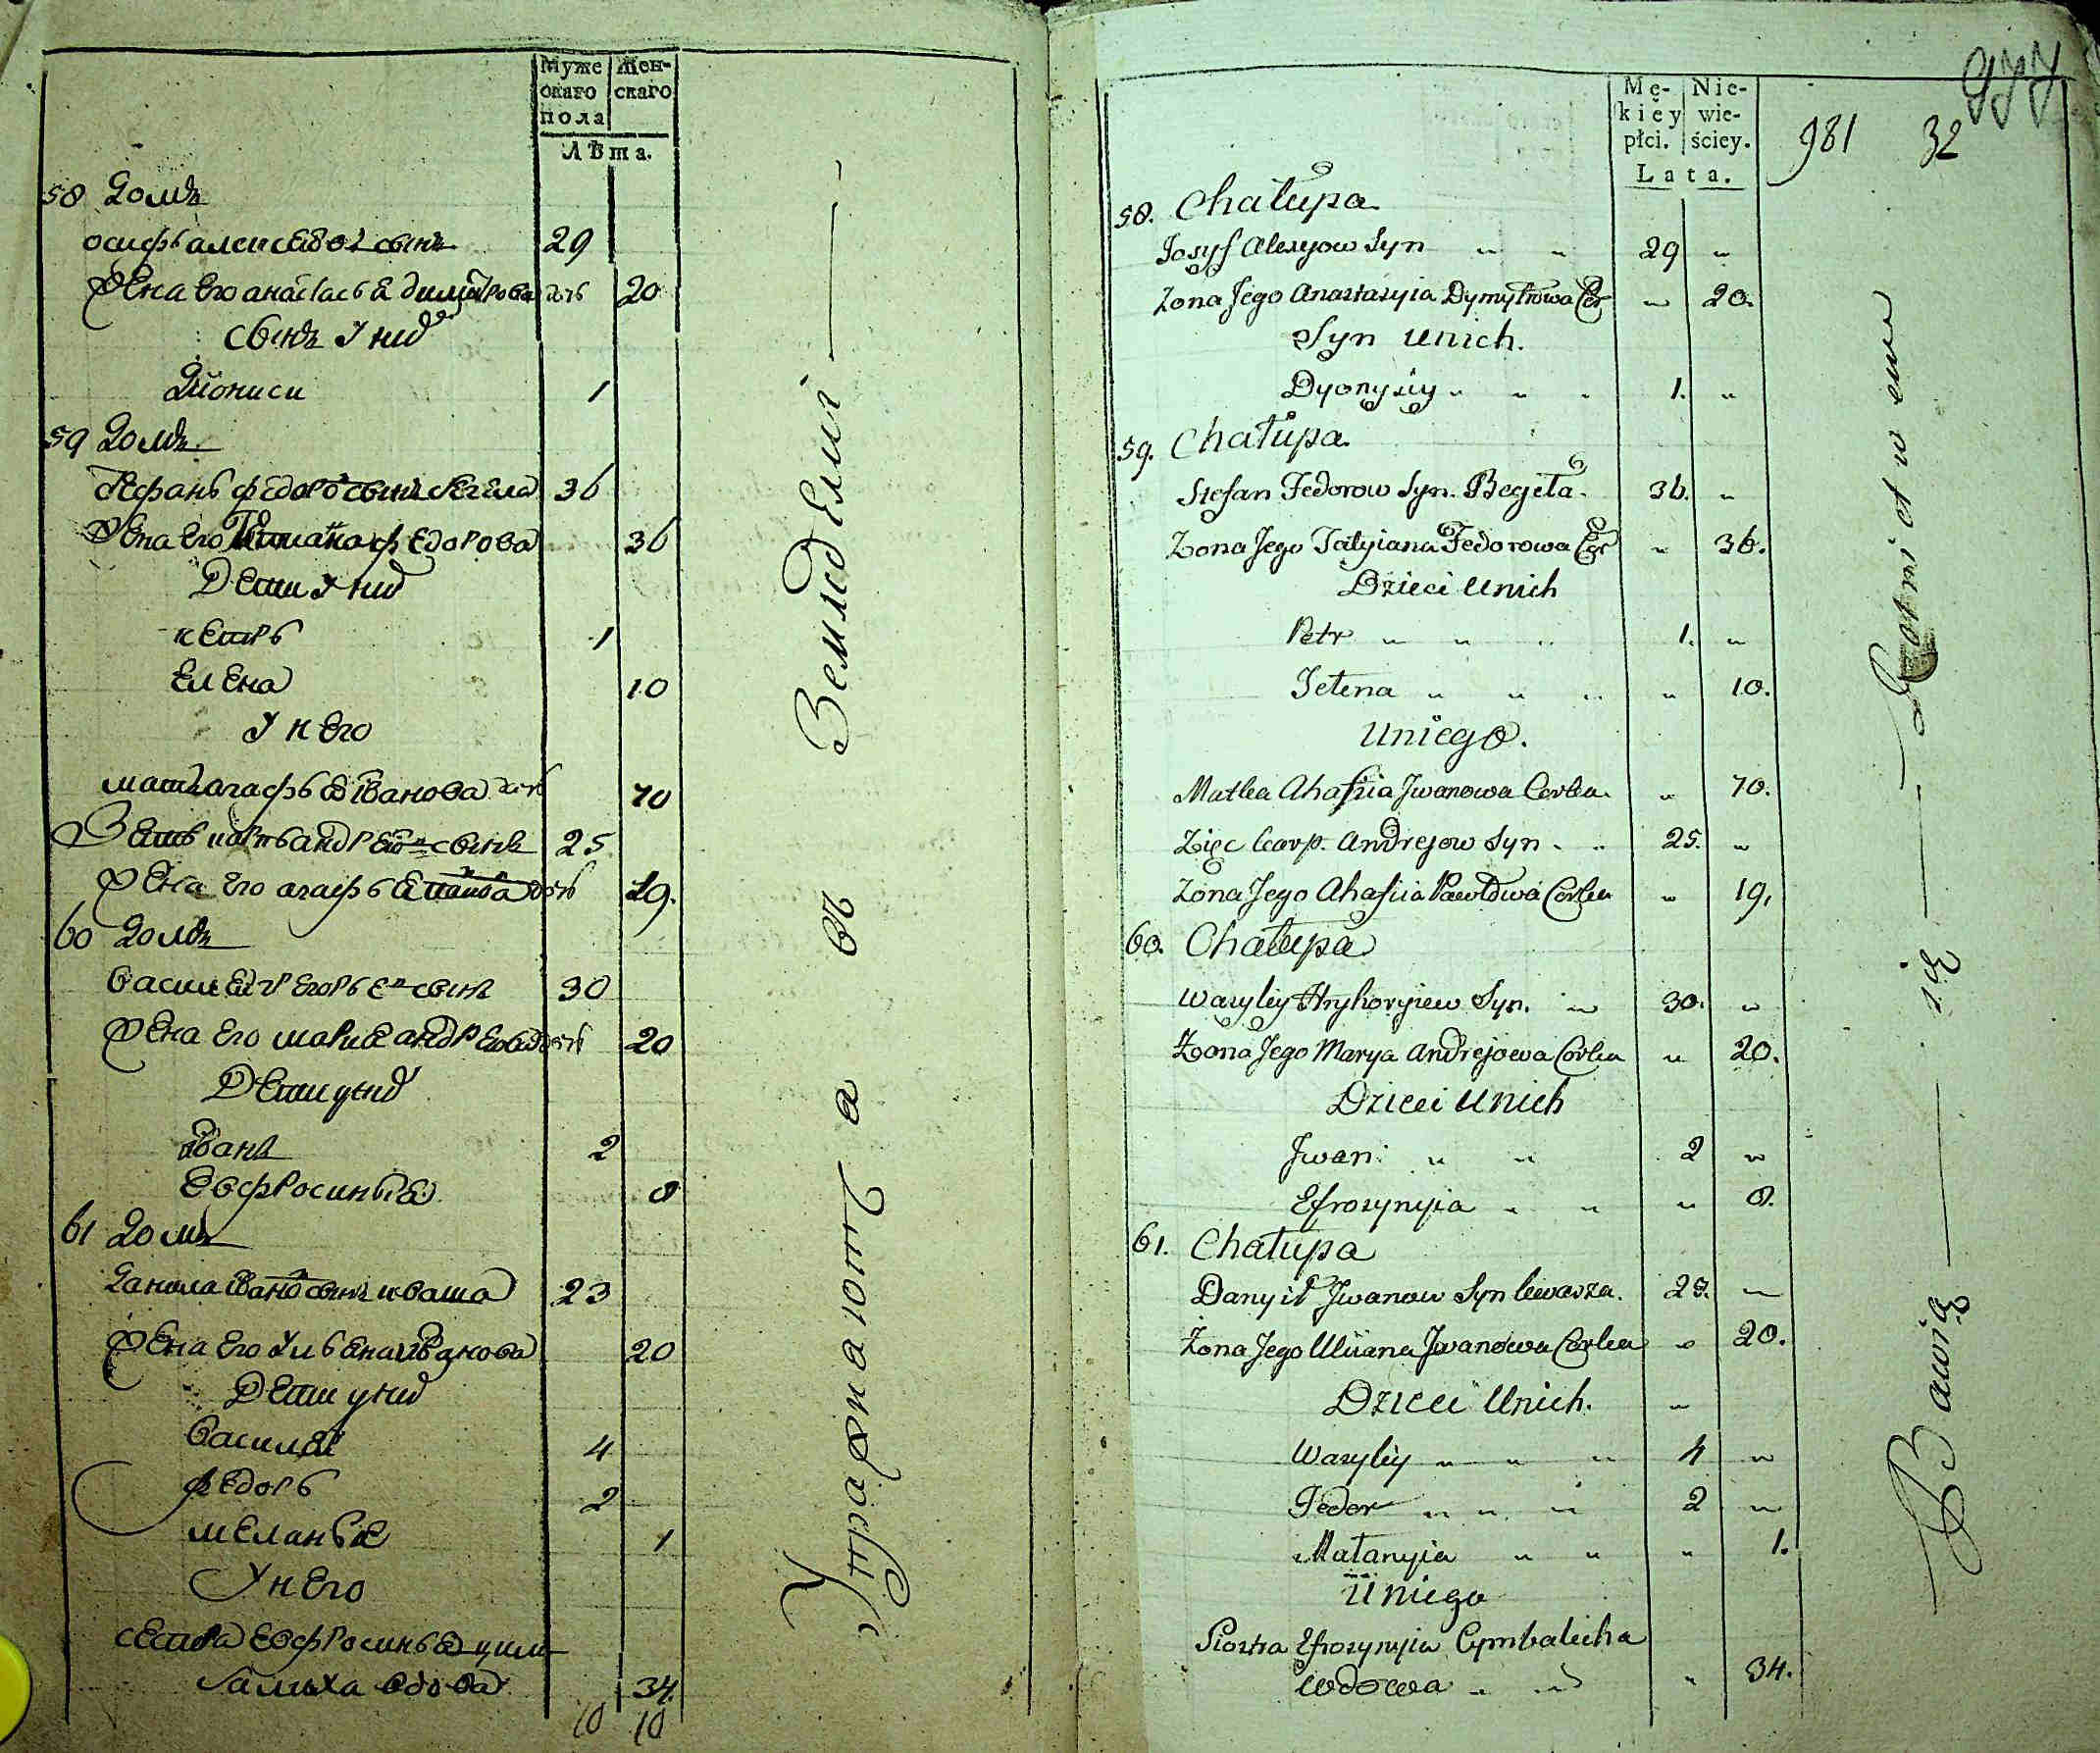 Муже
скаго
пола
Жен-
скаго
Лѣта.
58 Домъ
осифъ алексѣевъ сынъ 29
жена его анастасья димитрова дочь 20
сынъ у них
Диониси 1
59 Домъ
Стефанъ федоровъ сынъ 36
жена его Татиана федорова 36
Дети у них
петръ 1
Елена 10
У него
мать агафья іванова дочь 70
Зеть карпъ андреевъ сынъ 25
жена его агафья павлова дочь 19.
60 Домъ
василей грегорьевъ сынъ 30
жена его мариа андреева дочь 20
Дети у них
іванъ 2
Еофросинья 8
61 Домъ
Данила івановъ сынъ кваша 23
жена его Ульена іванова 20
Дети у них
василей 4
федоръ 2
меланья 1
У него
сестра Еофросинья цим-
балиха вдова 34.
10 10
Упражнаютца въ Земледелиі
977
981 32
Mę-
kiey
płci.
Nie-
wie-
ściey.
Lata.
58. Chałupa
Josyf Alexyow Syn " " 29 "
Zona Jego Anastazyia Dymytrowa Cor " 20.
Syn unich.
Dyonyziy " " " 1. "
59. Chałupa
Stefan Fedorow Syn. Begeta. 36. "
Zona Jego Tatyiana Fedorowa Cor " 36.
Dzieci Unich
Petr " " " 1. "
Jelena " " " " 10.
Uniego.
Matka Ahafiia Jwanowa Corka. " 70.
Zięc Karp. Andrejow Syn " " 25. "
Zona Jego Ahafiia Pawłowa Corka " 19.
60. Chałupa
Wasyley Hryhoryiew Syn. " 30. "
Żona Jego Marya Andrejowa Corka " 20.
Dzieci Unich
Jwan " " 2 "
Efrozynyia " " " 8.
61. Chałupa
Danyił Jwanow Syn kwasza. 23. "
Żona Jego Uliiana Jwanowa Corka " 20.
Dzieci Unich. "
Wasyley " " " 4 "
Fedor " " " 2 "
Małanyia " " " 1.
Uniego
Siostra Efrozynyia Cymbalicha
wdowa " " " 34.
Bawią się